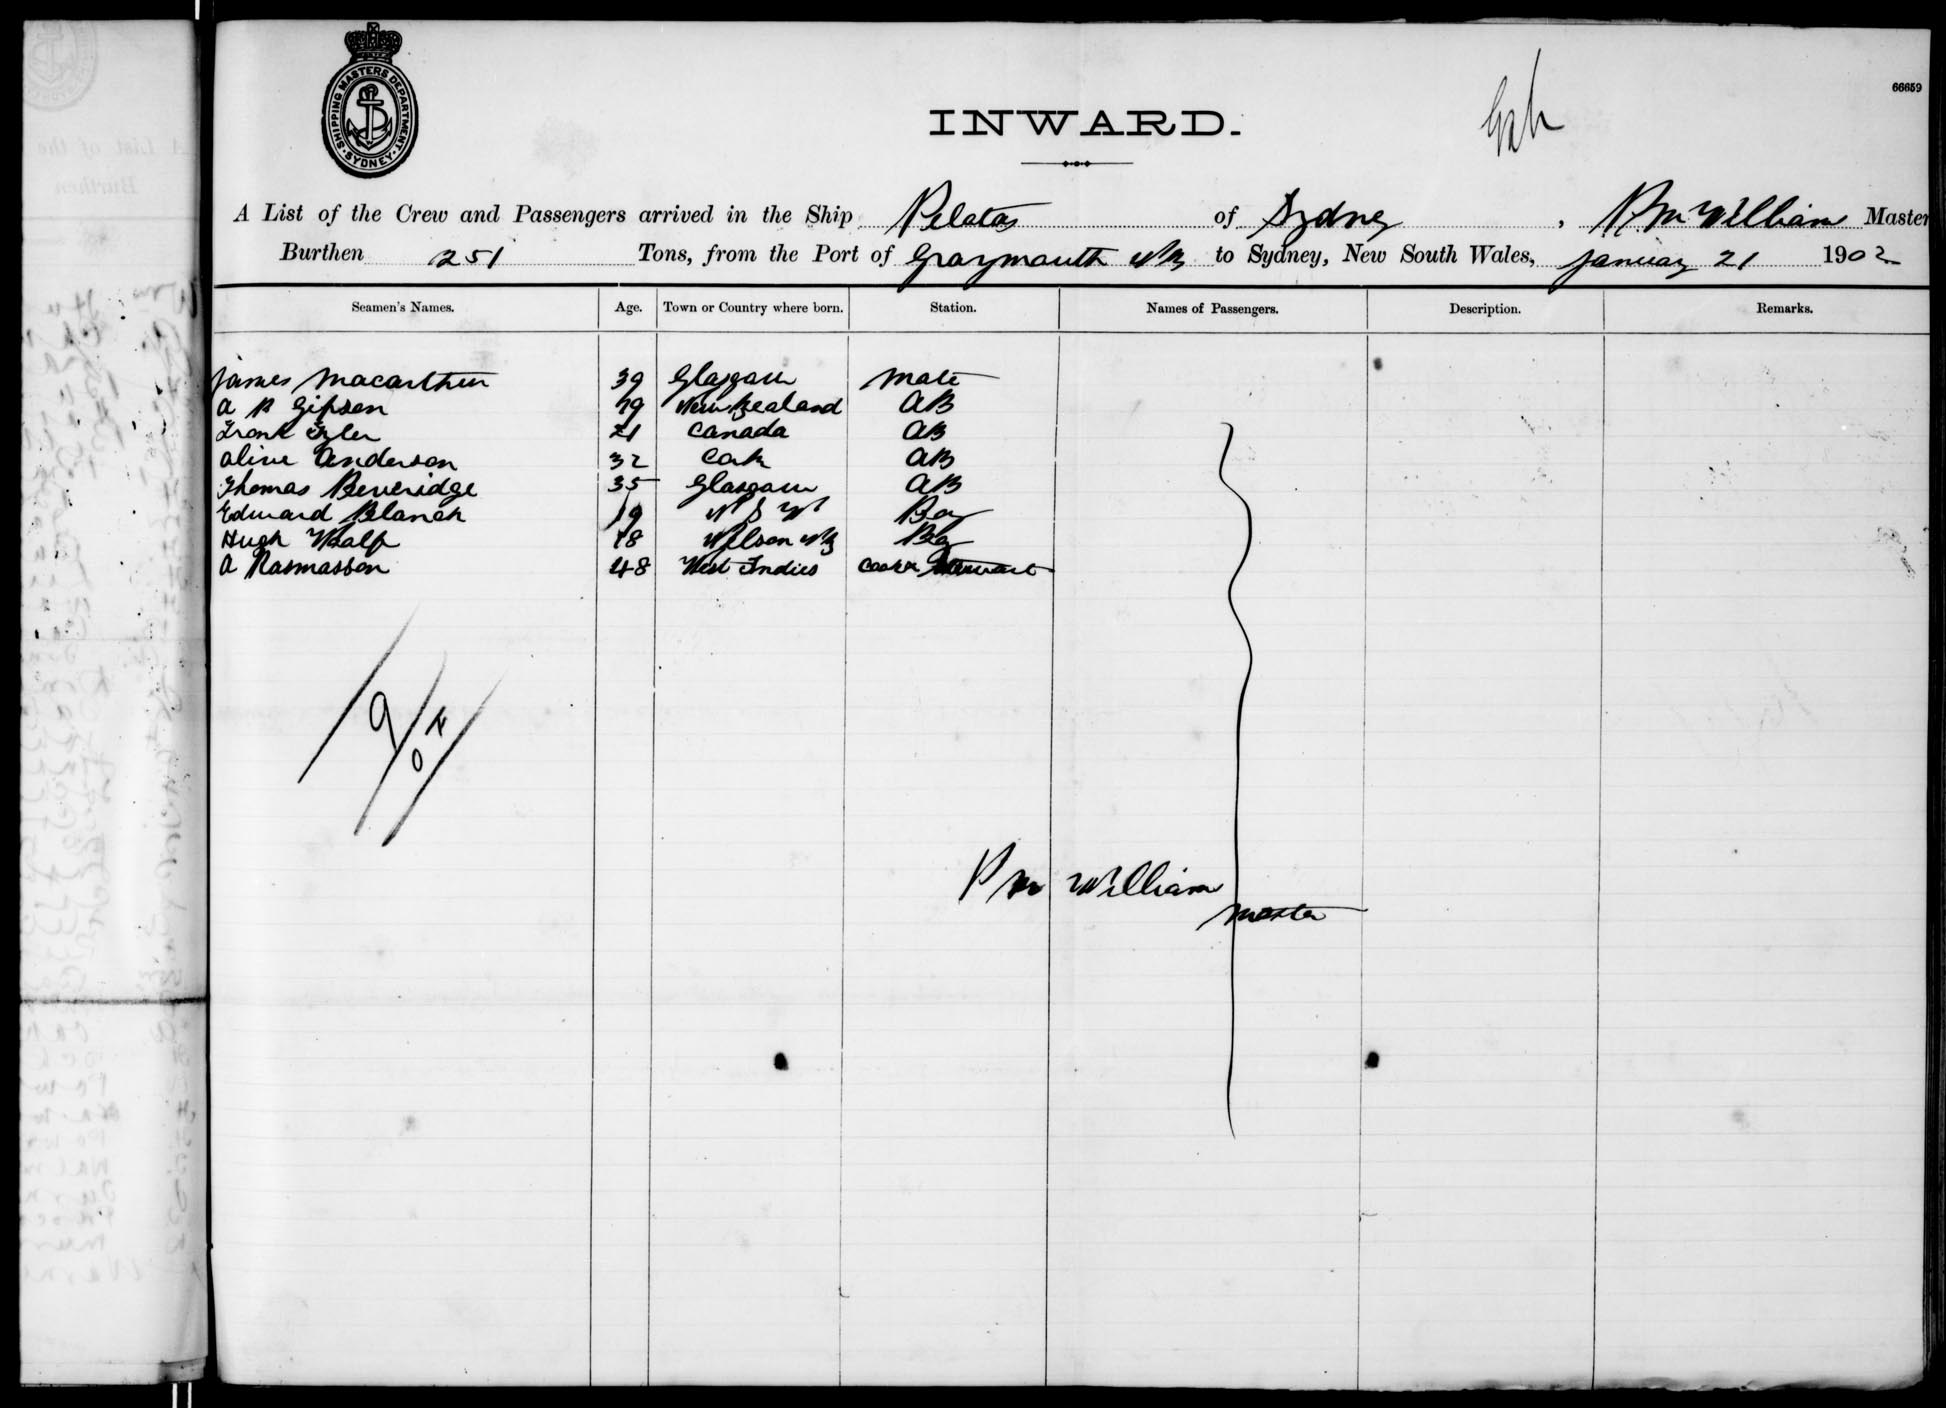 SHIPPING MASTERS DEPARTMENT
SYDNEY
66659
INWARD.
A List of the Crew and Passengers arrived in the Ship Pelotas of Sydney, P Mc William Master
Burthen 251 Tons, from the Port of Graymouth NZ to Sydney, New South Wales, January 21 1902
Seamen's Names. Age. Town or Country where born. Station. Names of Passengers. Description. Remarks.
James Macarthur 39 Glasgow Mate
A B Gibson 19 New Zealand AB
Frank Tyler 21 Canada AB
Olive Anderson 32 Cork AB
Thomas Beveridge 35 Glasgow AB
Edward Blanch 19 N S W Boy
Hugh Woolf 18 Nelson NZ Boy
A Rasmasson 48 West Indies Cook &
P Mc William
Master